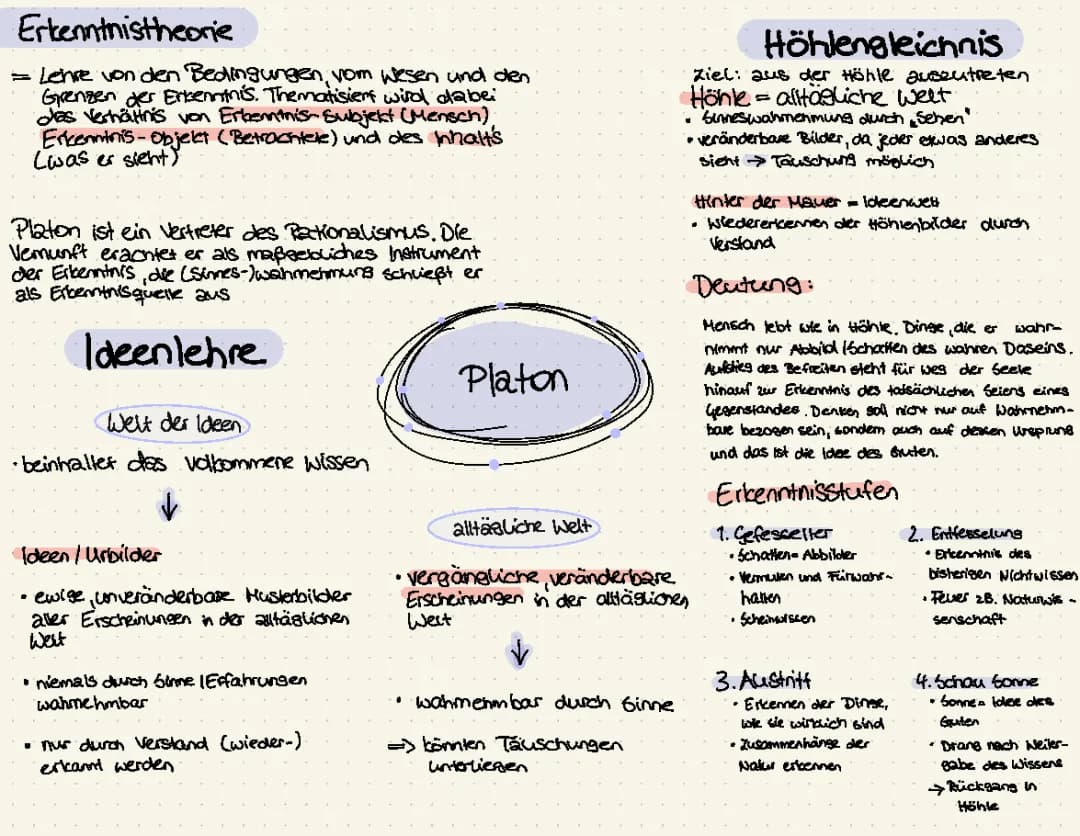 Erkenntnistheorie
= Lehre von den Bedingungen, vom Wesen und den
Grenzen der Erkenntnis. Thematisiert wird dabei
das Verhältnis von Erkenntnis-Subjekt (Mensch),
Erkenntnis-Objekt (Betrachtete) und des Inhalts
(was er sieht)
Platon ist ein Vertreter des Rationalismus. Die
Vernunft erachtet er als maßgebliches Instrument
der Erkenntnis, die (Sinnes-)wahrnehmung schließt er
als Erkenntnisquelle aus
Ideenlehre
Welt der Ideen
• beinhaltet das vollkommene Wissen
↓
Ideen / Urbilder
• ewige, unveränderbare Musterbilder
aller Erscheinungen in der alltäglichen
Welt
• niemals durch Sinne / Erfahrungen
wahrnehmbar
• nur durch Verstand (wieder-)
erkannt werden
Platon
alltägliche Welt
• vergängliche, veränderbare
Erscheinungen in der alltäglichen
Welt
↓
• wahrnehmbar durch Sinne
=> könnten Täuschungen
unterliegen
Höhlengleichnis
Ziel: aus der Höhle auszutreten
Höhle = alltägliche Welt
• Sinneswahrnehmung durch „Sehen"
• veränderbare Bilder, da jeder etwas anderes
sieht → Täuschung möglich
Hinter der Mauer = Ideenwelt
• Wiedererkennen der Höhlenbilder durch
Verstand
Deutung:
Mensch lebt wie in Höhle. Dinge, die er wahr-
nimmt nur Abbild / Schatten des wahren Daseins.
Aufstieg des Befreiten steht für Weg der Seele
hinauf zur Erkenntnis des tatsächlichen Seiens eines
Gegenstandes. Denken soll nicht nur auf Wahrnehm-
bare bezogen sein, sondern auch auf dessen Ursprung
und das ist die Idee des Guten.
Erkenntnisstufen
1. Gefesselter
• Schatten = Abbilder
• Vermuten und Fürwahr-
halten
• Scheinwissen
2. Entfesselung
• Erkenntnis des
bisherigen Nichtwissen
• Feuer zB. Naturwis-
senschaft
3. Austritt
• Erkennen der Dinge,
wie sie wirklich sind
• Zusammenhänge der
Natur erkennen
4. Schau Sonne
• Sonne = Idee des
Guten
• Drang nach Weiter-
gabe des Wissens
→ Rückgang in
Höhle